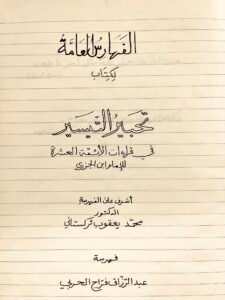 الفهارس العامة
لكتاب
تحبير التيسير
في قراءات الأئمة العشرة
للإمام ابن الجزري
أشرف على الفهرسة
الدكتور
محمد يعقوب تركستاني
فهرسة
عبد الرزاق فراج الحربي